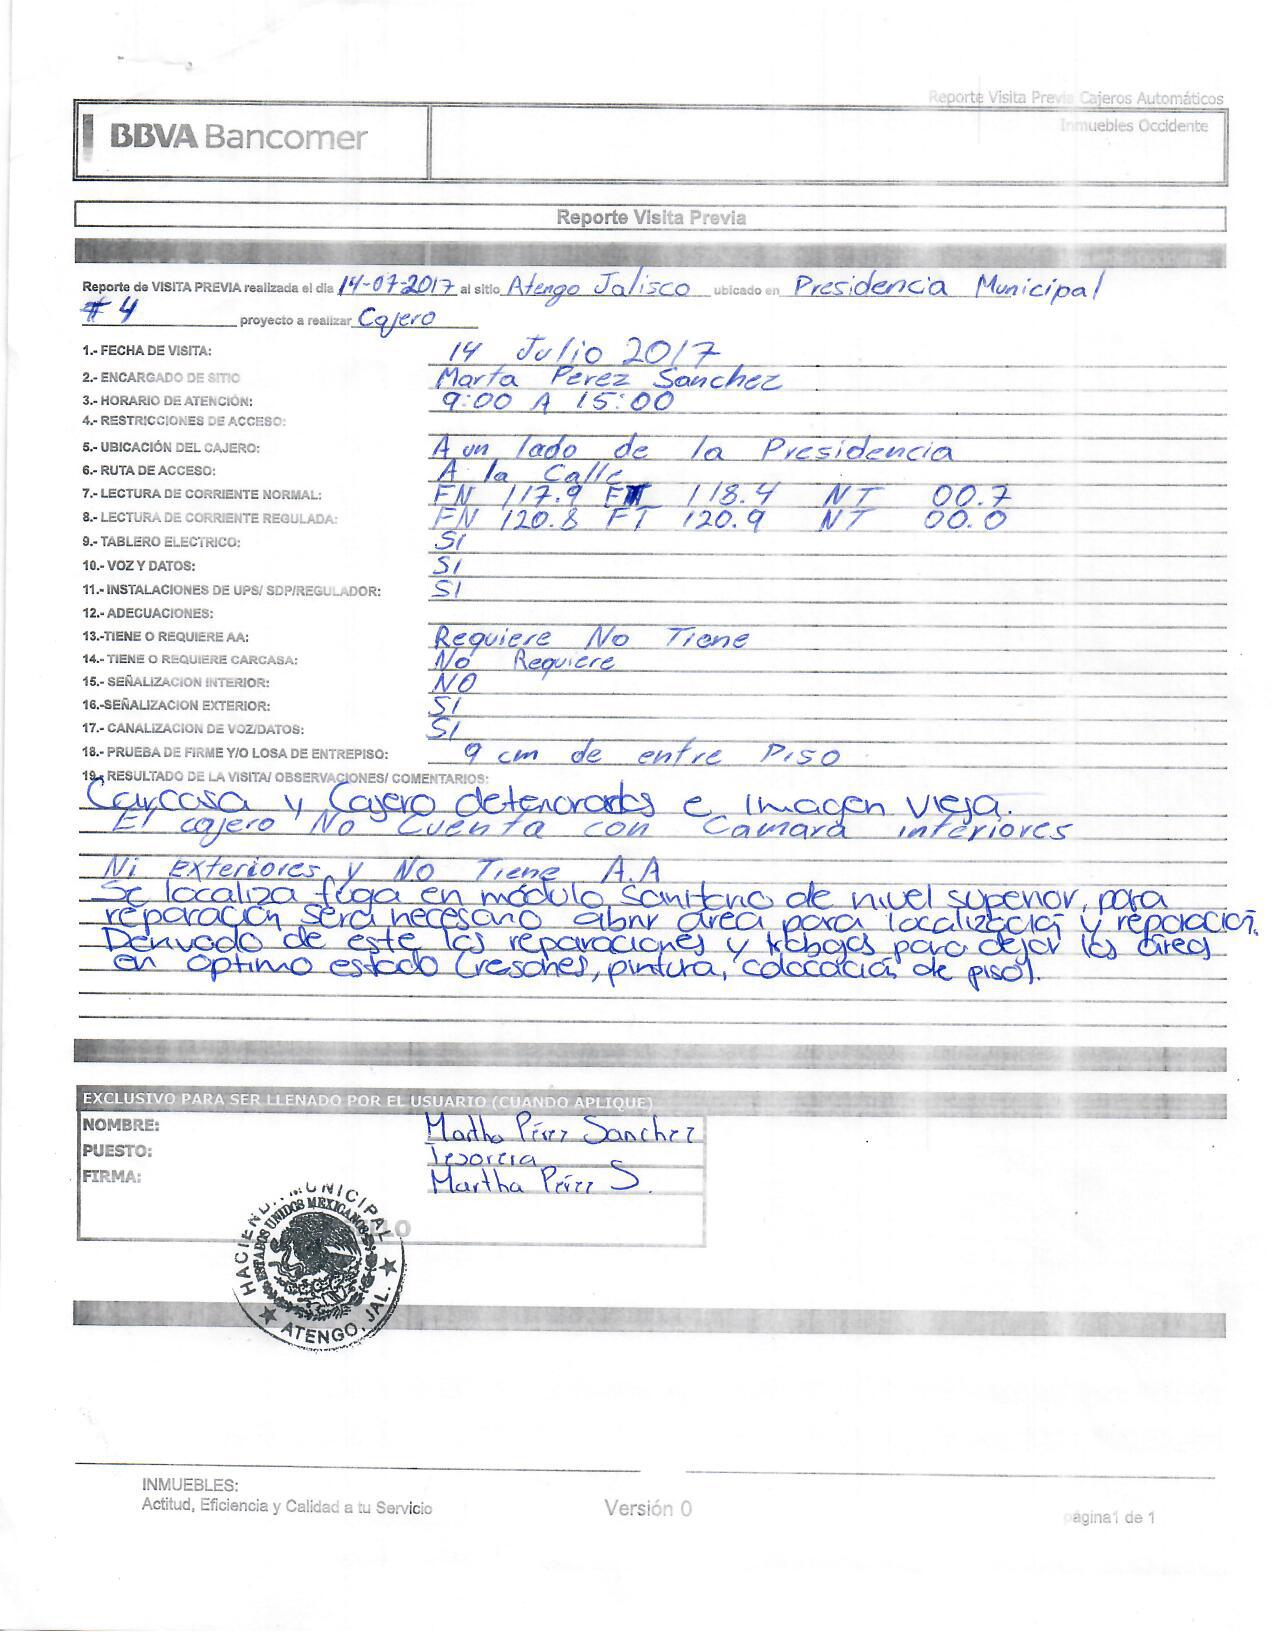 Reporte Visita Previa Cajeros Automáticos
Inmuebles Occidente
BBVA Bancomer
Reporte Visita Previa
Reporte de VISITA PREVIA realizada el dia 14-07-2017 al sitio Atengo Jalisco ubicado en Presidencia Municipal
# 4 proyecto a realizar Cajero
1.- FECHA DE VISITA: 14 Julio 2017
2.- ENCARGADO DE SITIO Marta Perez Sanchez
3.- HORARIO DE ATENCIÓN: 9:00 A 15:00
4.- RESTRICCIONES DE ACCESO:
5.- UBICACIÓN DEL CAJERO: A un lado de la Presidencia
6.- RUTA DE ACCESO: A la Calle
7.- LECTURA DE CORRIENTE NORMAL: FN 117.9 FT 118.4 NT 00.7
8.- LECTURA DE CORRIENTE REGULADA: FN 120.8 FT 120.9 NT 00.0
9.- TABLERO ELECTRICO: SI
10.- VOZ Y DATOS: SI
11.- INSTALACIONES DE UPS/ SDP/REGULADOR: SI
12.- ADECUACIONES:
13.-TIENE O REQUIERE AA: Requiere No Tiene
14.- TIENE O REQUIERE CARCASA: No Requiere
15.- SEÑALIZACION INTERIOR: NO
16.-SEÑALIZACION EXTERIOR: SI
17.- CANALIZACION DE VOZ/DATOS: SI
18.- PRUEBA DE FIRME Y/O LOSA DE ENTREPISO: 9 cm de entre Piso
19.- RESULTADO DE LA VISITA/ OBSERVACIONES/ COMENTARIOS:
Carcasa y Cajero deteriorados e imagen vieja.
El cajero No Cuenta con Camara interiores
Ni exteriores y No Tiene A.A
Se localiza fuga en módulo sanitario de nivel superior, para
reparación será necesario abrir área para localización y reparación.
Derivado de este las reparaciones y trabajos para dejar las áreas
en óptimo estado (resanes, pintura, colocación de piso).
EXCLUSIVO PARA SER LLENADO POR EL USUARIO (CUANDO APLIQUE)
NOMBRE: Martha Pérez Sanchez
PUESTO: Tesorera
FIRMA: Martha Pérez S.
HACIENDA MUNICIPAL
ESTADOS UNIDOS MEXICANOS
ATENGO, JAL.
INMUEBLES:
Actitud, Eficiencia y Calidad a tu Servicio
Versión 0
página1 de 1